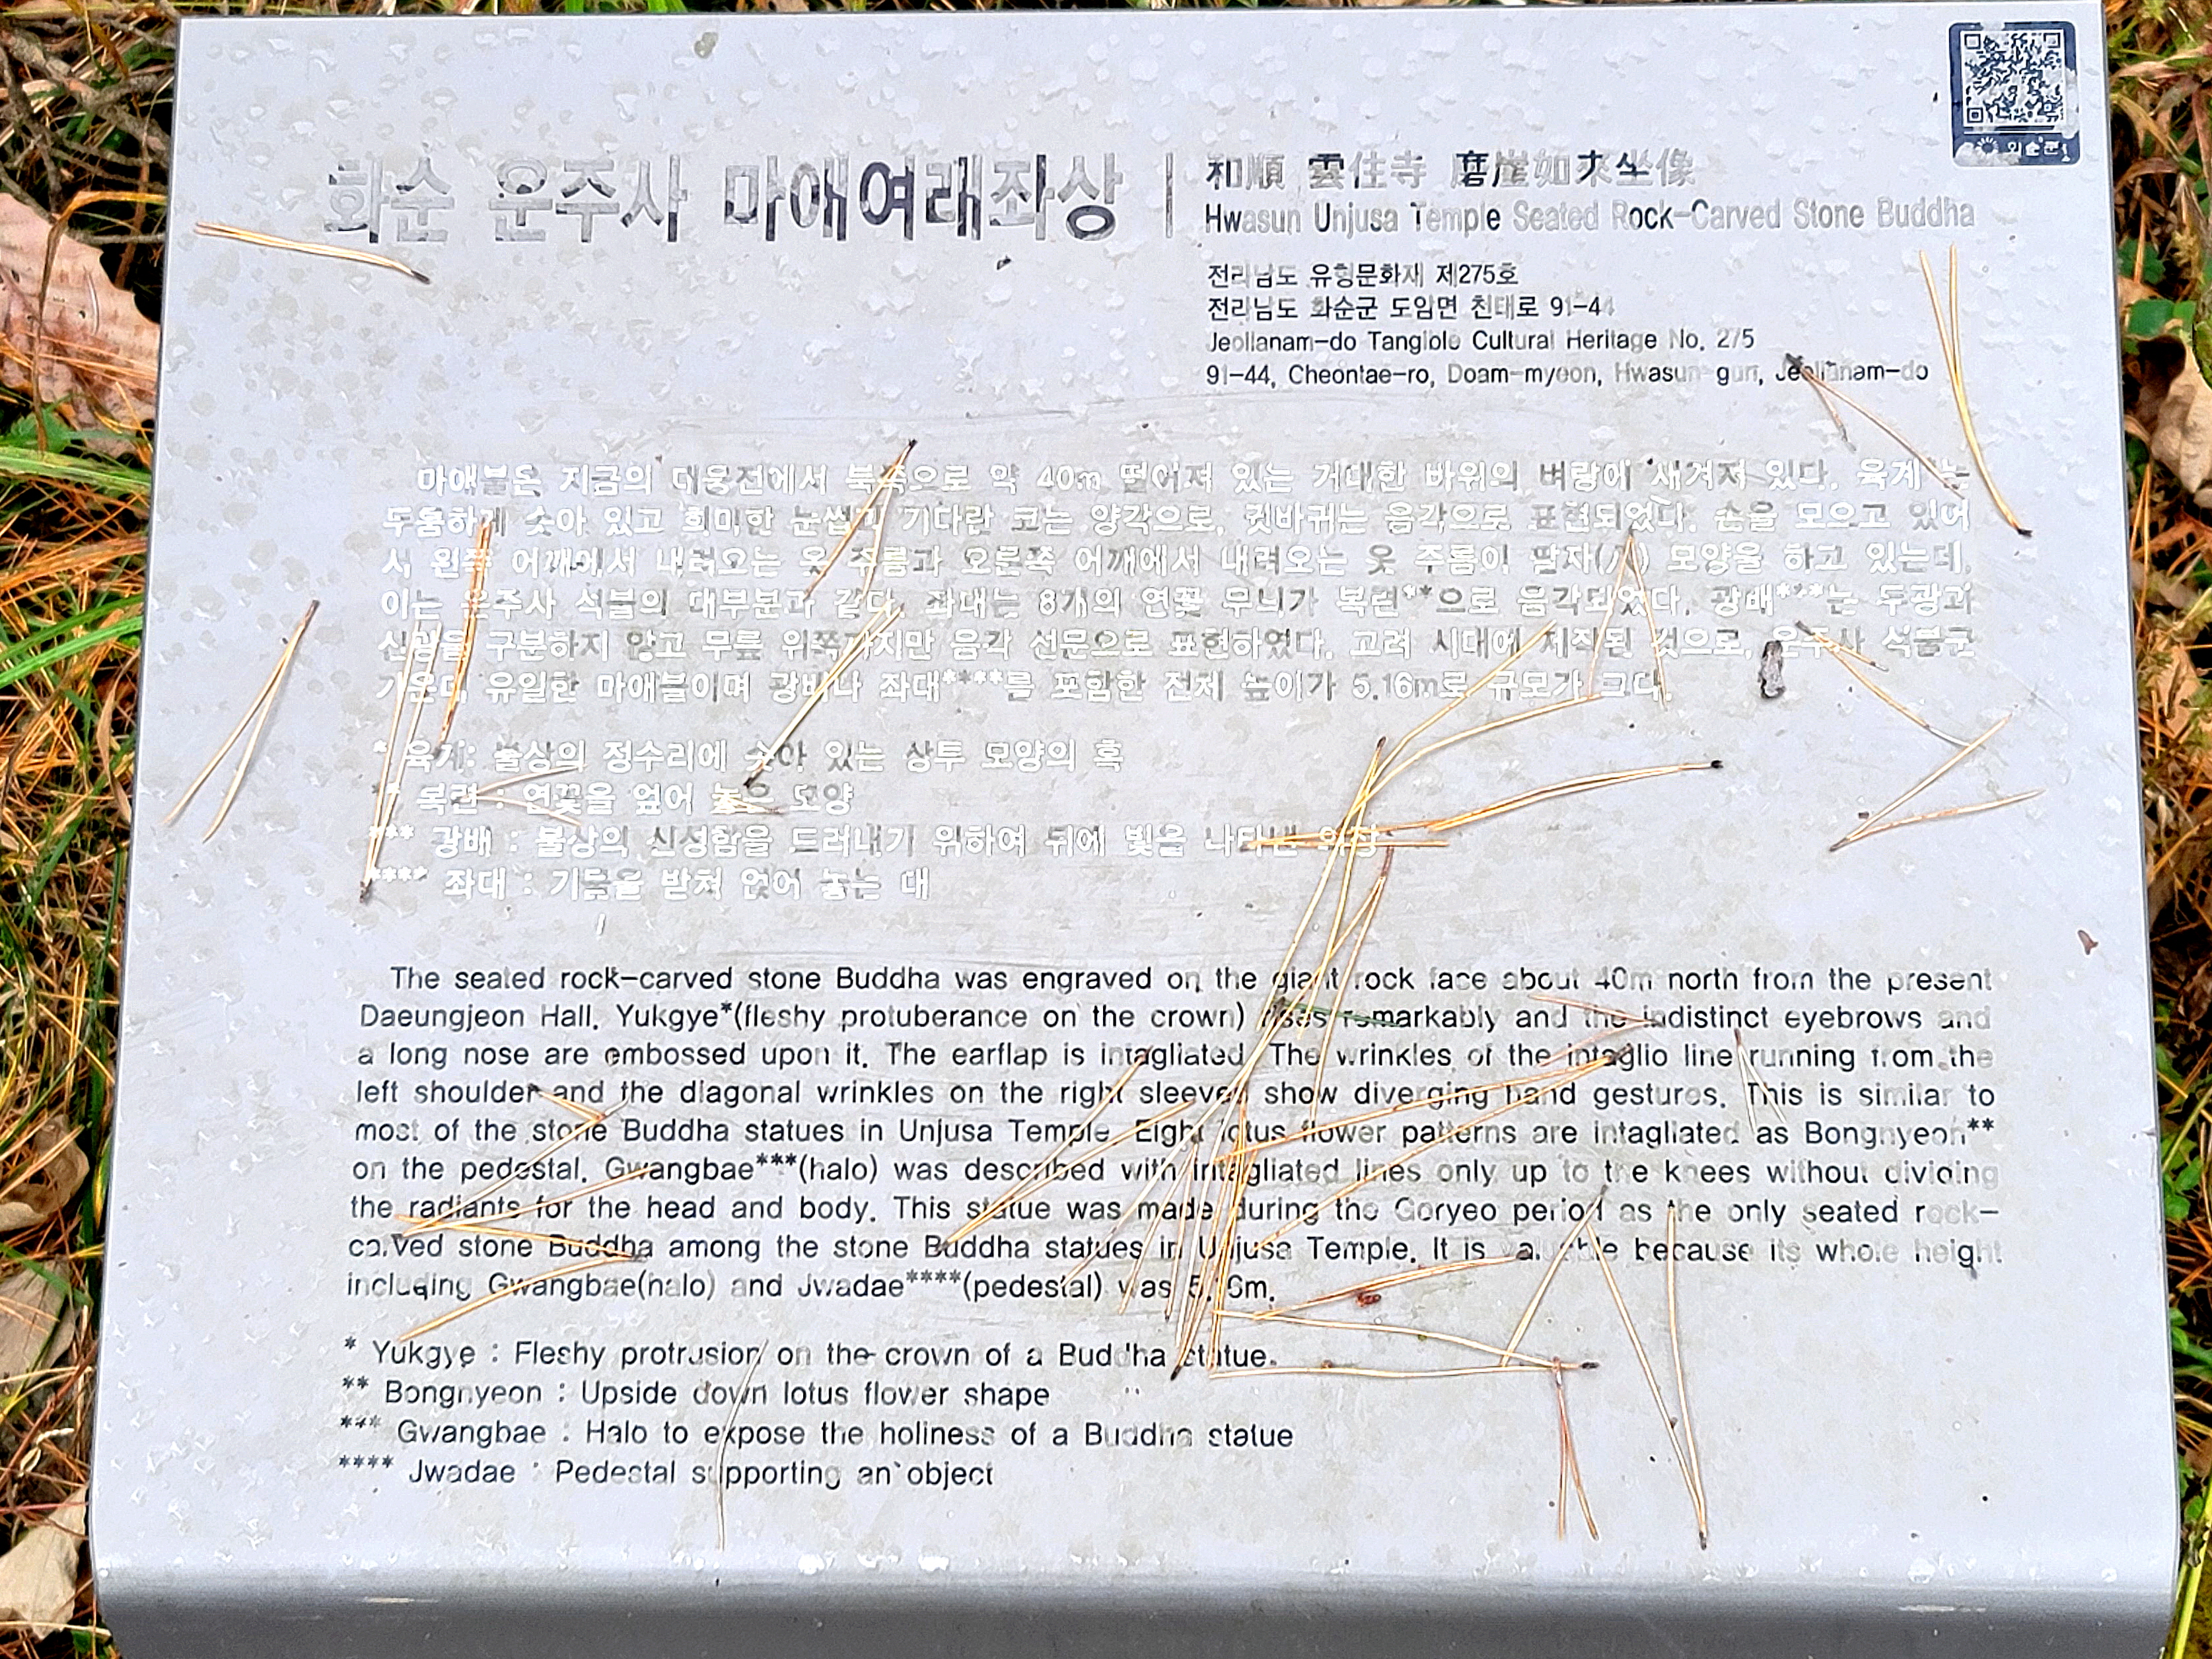 화순 운주사 마애여래좌상
和順 雲住寺 磨崖如來坐像
Hwasun Unjusa Temple Seated Rock-Carved Stone Buddha
전라남도 유형문화재 제275호
전라남도 화순군 도암면 천태로 91-44
Jeollanam-do Tangible Cultural Heritage No. 275
91-44, Cheontae-ro, Doam-myeon, Hwasun-gun, Jeollanam-do
화순군
마애불은 지금의 대웅전에서 북쪽으로 약 40m 떨어져 있는 거대한 바위의 벼랑에 새겨져 있다. 육계*는
두툼하게 솟아 있고 희미한 눈썹과 기다란 코는 양각으로, 귓바퀴는 음각으로 표현되었다. 손을 모으고 있어
서 왼쪽 어깨에서 내려오는 옷 주름과 오른쪽 어깨에서 내려오는 옷 주름이 팔자(八) 모양을 하고 있는데,
이는 운주사 석불의 대부분과 같다. 좌대는 8개의 연꽃 무늬가 복련**으로 음각되었다. 광배***는 두광과
신광을 구분하지 않고 무릎 위쪽까지만 음각 선문으로 표현하였다. 고려 시대에 제작된 것으로, 운주사 석불군
가운데 유일한 마애불이며 광배나 좌대****를 포함한 전체 높이가 5.16m로 규모가 크다.
* 육계: 불상의 정수리에 솟아 있는 상투 모양의 혹
** 복련 : 연꽃을 엎어 놓은 모양
*** 광배 : 불상의 신성함을 드러내기 위하여 뒤에 빛을 나타낸 의장
**** 좌대 : 기물을 받쳐 얹어 놓는 대
The seated rock-carved stone Buddha was engraved on the giant rock face about 40m north from the present
Daeungjeon Hall. Yukgye*(fleshy protuberance on the crown) rises remarkably and the indistinct eyebrows and
a long nose are embossed upon it. The earflap is intagliated. The wrinkles of the intaglio line running from the
left shoulder and the diagonal wrinkles on the right sleeves show diverging hand gestures. This is similar to
most of the stone Buddha statues in Unjusa Temple. Eight lotus flower patterns are intagliated as Bongnyeon**
on the pedestal. Gwangbae***(halo) was described with intagliated lines only up to the knees without dividing
the radiants for the head and body. This statue was made during the Goryeo period as the only seated rock-
carved stone Buddha among the stone Buddha statues in Unjusa Temple. It is valuable because its whole height
including Gwangbae(halo) and Jwadae****(pedestal) was 5.16m.
* Yukgye : Fleshy protrusion on the crown of a Buddha statue.
** Bongnyeon : Upside down lotus flower shape
*** Gwangbae : Halo to expose the holiness of a Buddha statue
**** Jwadae : Pedestal supporting an object